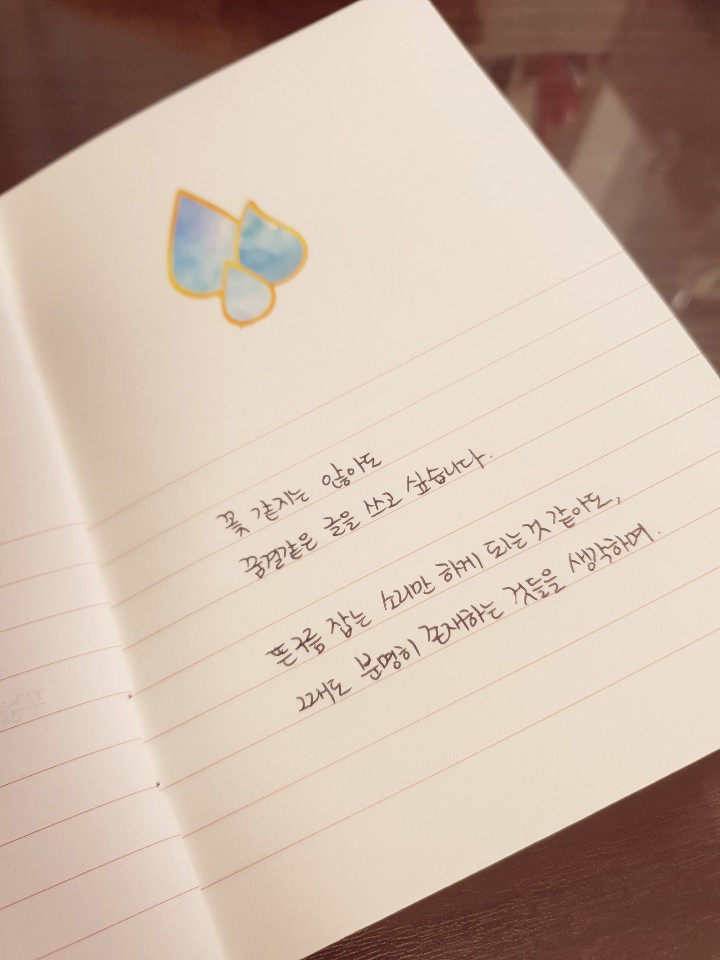 꽃 같지는 않아도
꿈결같은 글을 쓰고 싶습니다.
뜬구름 잡는 소리만 하게 되는것 같아도,
그래도 분명히 존재하는 것들을 생각하며.